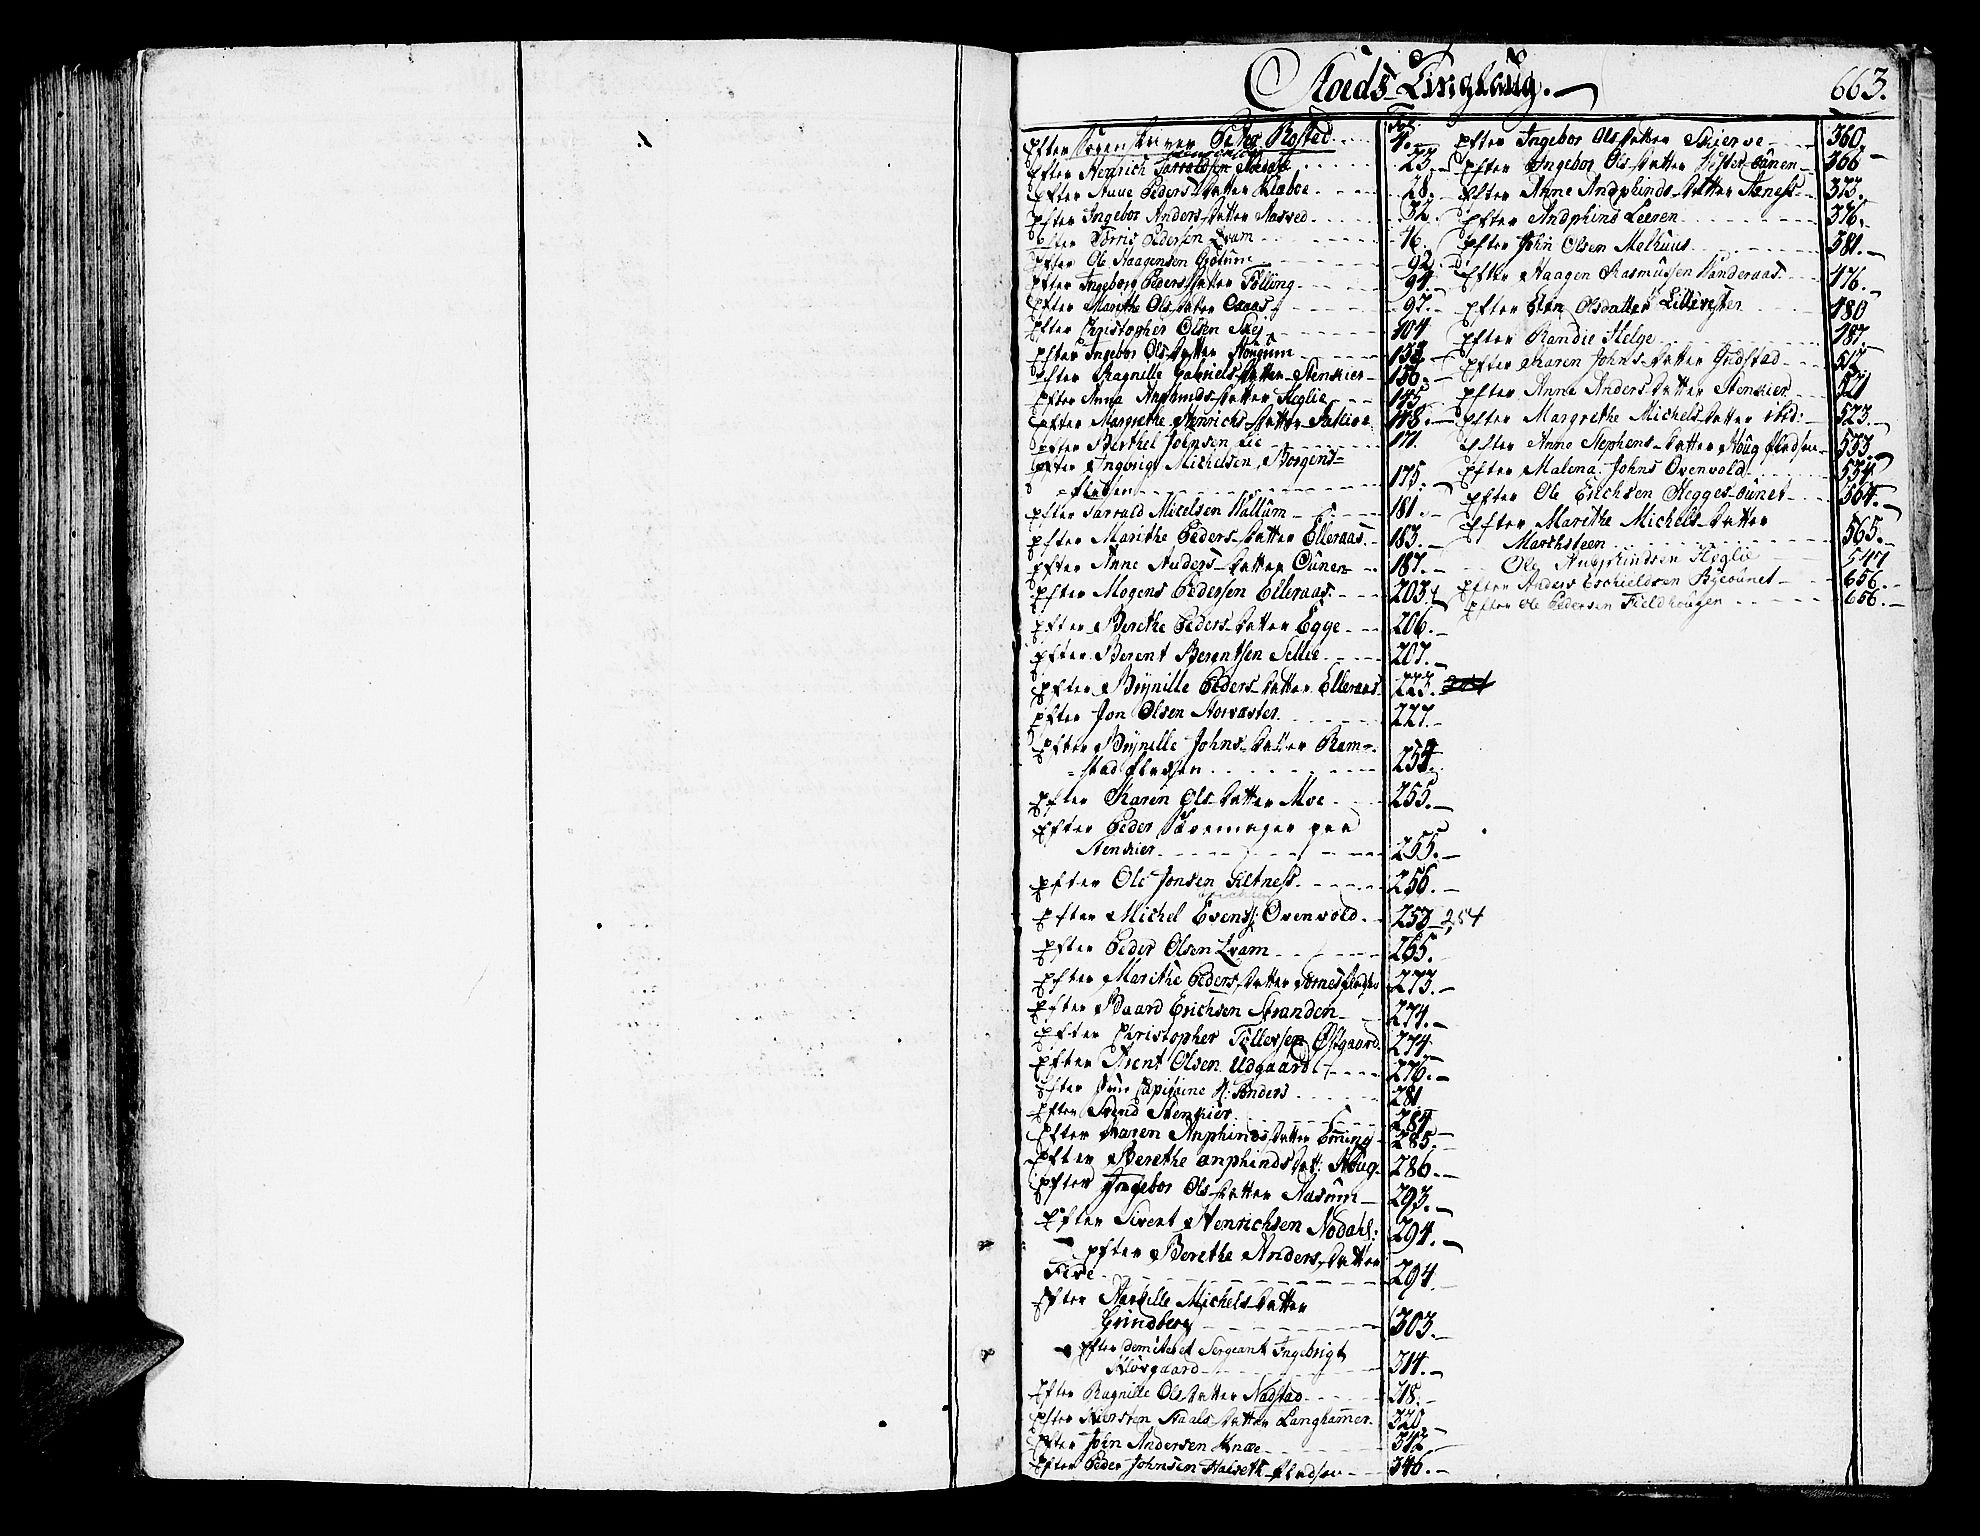 Stods Tinglaug.
663.
Fol.
Efter Sorenskriver Peder Rofstad 4.
Efter Henrich Tarraldsen 23.
Efter Anne Peders datter Klaboe 28.
Efter Ingebor Anders datter Aasved 32.
Efter Torris Pedersen Qvam 46.
Efter Ole Haagensen 92.
Efter Ingeborg Peders datter Fölling 94.
Efter Marithe Ols datter 97.
Efter Christopher Olsen Skej 104
Efter Ingebor Ols datter 133
Efter Ragnille Gabriels datter Stenkier 136.
Efter Anna Anphinds datter Heglie 145.
Efter Margrethe Henrichs datter 148.
Efter Berthel Joensen Lie 171
Efter Ingbrigt Michelsen Borgens=
=fladsen 175.
Efter Tarrald Micelsen Vallum 181.
Efter Marithe Peders datter Elleraas 183.
Efter Anne Anders datter Ounen 187.
Efter Mogens Pedersen Elleraas 203.
Efter Berethe Peders datter Egge 206.
Efter Berent Berentsen Sellie 207.
Efter Brynille Peders datter Elleraas 223.
Efter Jon Olsen Norvaster 227.
Efter Brynille Johns datter Ram=
=stad fladsen 254.
Efter Karen Ols datter Moe 255.
Efter Peder Farvemager paa
Stenkier 255.
Efter Ole Jonsen Siltness 256.
Efter Michel Evens: Ovenvold 253 254
Efter Peder Olsen Qvam 265.
Efter Marithe Peders datter 273.
Efter Baard Erichsen Stranden 274.
Efter Christopher Föllersen Östgaard 274
Efter Arent Olsen Udgaard 276.
Efter Capitaine Sonders 281
Efter Svend Stenkier 284
Efter Karen Anphinds datter 285.
Efter Berethe anphinds dat: Houg 286.
Efter Ingebor Ols datter Aasum 293.
Efter Sivert Henrichsen Nodahl: 294.
Efter Berethe Anders datter
Five 294
Efter Michels datter
Grindberg 303.
Efter demitebet Sergeant Ingebrigt
Kløvgaard 314.
Efter Ragnille Ols datter Nagstad 318.
Efter Kiersten datter Langhammer 320.
Efter John Andersen 342
Efter Peder Johnsen Halseth fladsen 346.
Efter Ingebor Ols datter Skierve 360.
Efter Ingebor Ols datter 366
Efter Anne Andphinds datter 373.
Efter Andphind Leeren 376.
Efter John Olsen Melhuus 381.
Efter Haagen Rasmussen Kanderaas 476.
Efter Olsdatter 480
Efter Randie Helge 487.
Efter Karen Johns datter Gudstad 515
Efter Anne Anders datter Stenkier 521
Efter Margrethe Michels datter ibid: 523.
Efter Anne Stephens datter Houg fladsen 533.
Efter Malena Johns Ovenvold 534.
Efter Ole Erichsen Hegges ounet 564.
Efter Marithe Michels datter
Marchsteen 565.
Ole Andphindsen Heglie 547
Efter Anders Eschieldsen Byeounet 656.
Efter Ole Pedersen Fieldhougen 656.